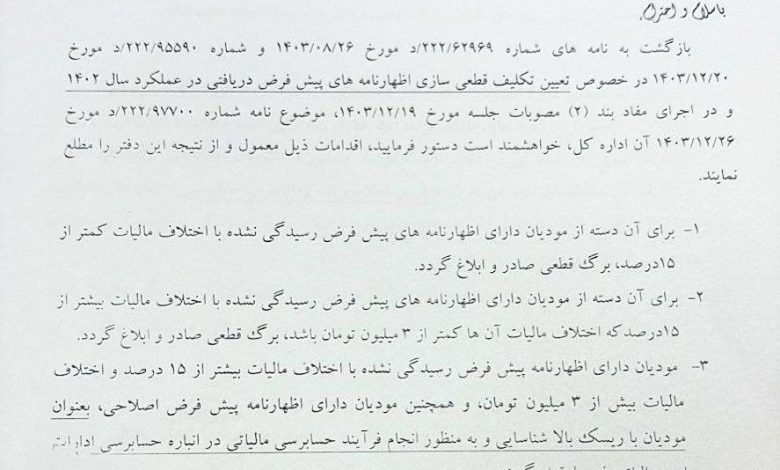 باسلام و احترام،
بازگشت به نامه های شماره ۲۲۲/۶۲۹۶۹/د مورخ ۱۴۰۳/۰۸/۲۶ و شماره ۲۲۲/۹۵۵۹۰/د مورخ
۱۴۰۳/۱۲/۲۰ در خصوص تعیین تکلیف قطعی سازی اظهارنامه های پیش فرض دریافتی در عملکرد سال ۱۴۰۲
و در اجرای مفاد بند (۲) مصوبات جلسه مورخ ۱۴۰۳/۱۲/۱۹، موضوع نامه شماره ۲۲۲/۹۷۷۰۰/د مورخ
۱۴۰۳/۱۲/۲۶ آن اداره کل، خواهشمند است دستور فرمایید، اقدامات ذیل معمول و از نتیجه این دفتر را مطلع
نمایند.
۱- برای آن دسته از مودیان دارای اظهارنامه های پیش فرض رسیدگی نشده با اختلاف مالیات کمتر از
۱۵درصد، برگ قطعی صادر و ابلاغ گردد.
۲- برای آن دسته از مودیان دارای اظهارنامه های پیش فرض رسیدگی نشده با اختلاف مالیات بیشتر از
۱۵درصدکه اختلاف مالیات آن ها کمتر از ۳ میلیون تومان باشد، برگ قطعی صادر و ابلاغ گردد.
۳- مودیان دارای اظهارنامه پیش فرض رسیدگی نشده با اختلاف مالیات بیشتر از ۱۵ درصد و اختلاف
مالیات بیش از ۳ میلیون تومان، و همچنین مودیان دارای اظهارنامه پیش فرض اصلاحی، بعنوان
مودیان با ریسک بالا شناسایی و به منظور انجام فرآیند حسابرسی مالیاتی در انباره حسابرسی ادارات